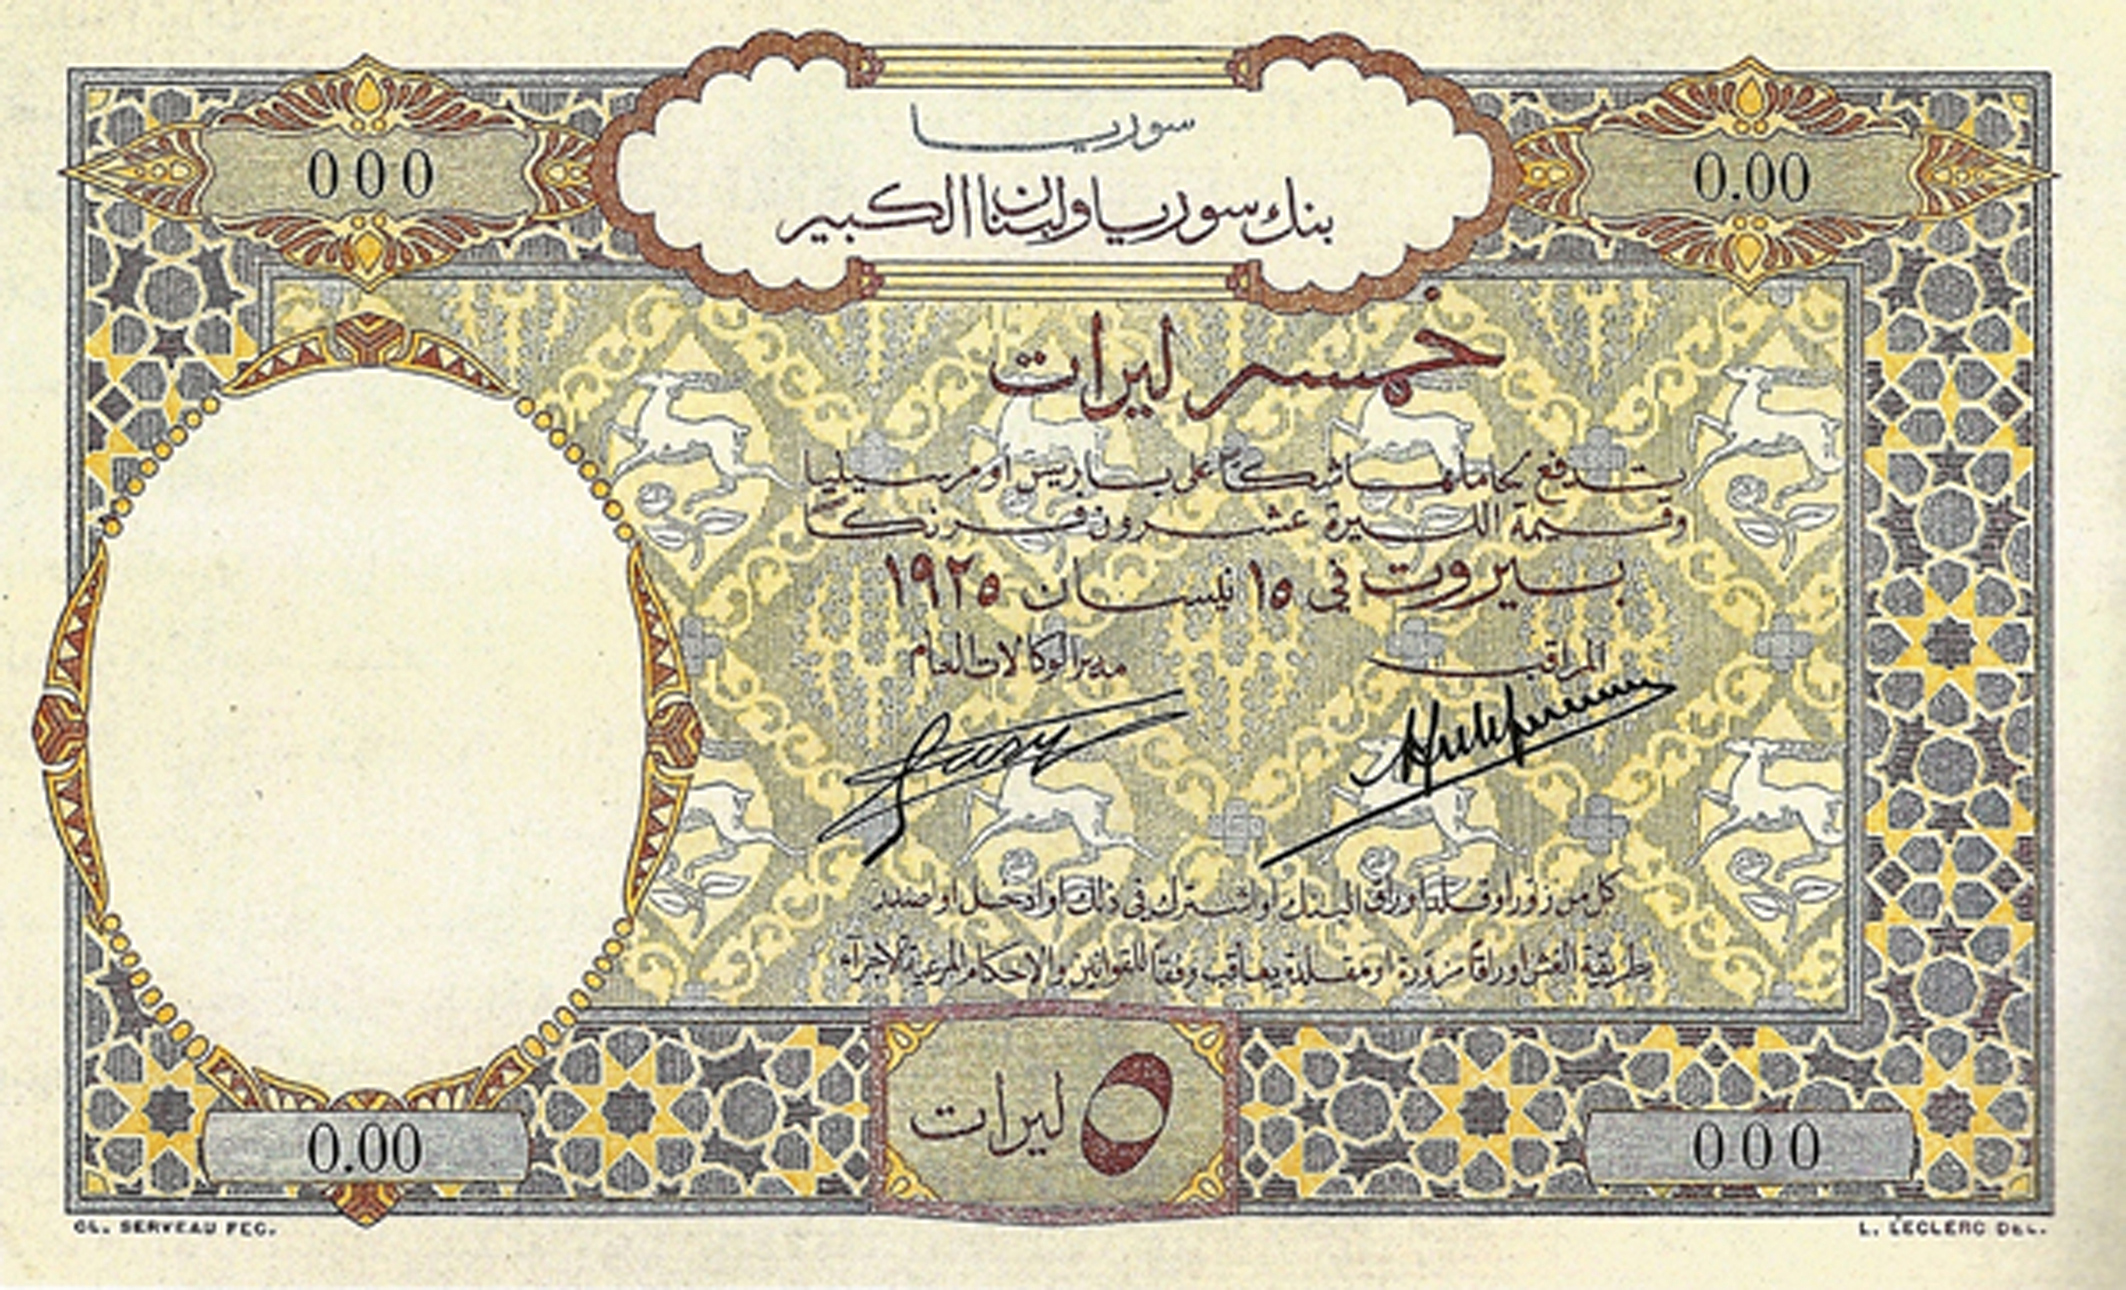 سوريا
بنك سوريا ولبنان الكبير
000
0.00
خمس ليرات
تدفع بكاملها شكاً على باريس او مرسيليا
وقيمة الليرة عشرون فرنكاً
بيروت في ١٥ نيسان ١٩٢٥
المراقب
مدير الوكالات العام
كل من زور او قلد اوراق البنك او اشترك في ذلك او ادخل او صدر
بطريقة الغش اوراقاً مزورة او مقلدة يعاقب وفقاً للقوانين والاحكام المرعية الاجراء
0.00
٥ ليرات
000
CL. SERVEAU FEC.
L. LECLERC DEL.